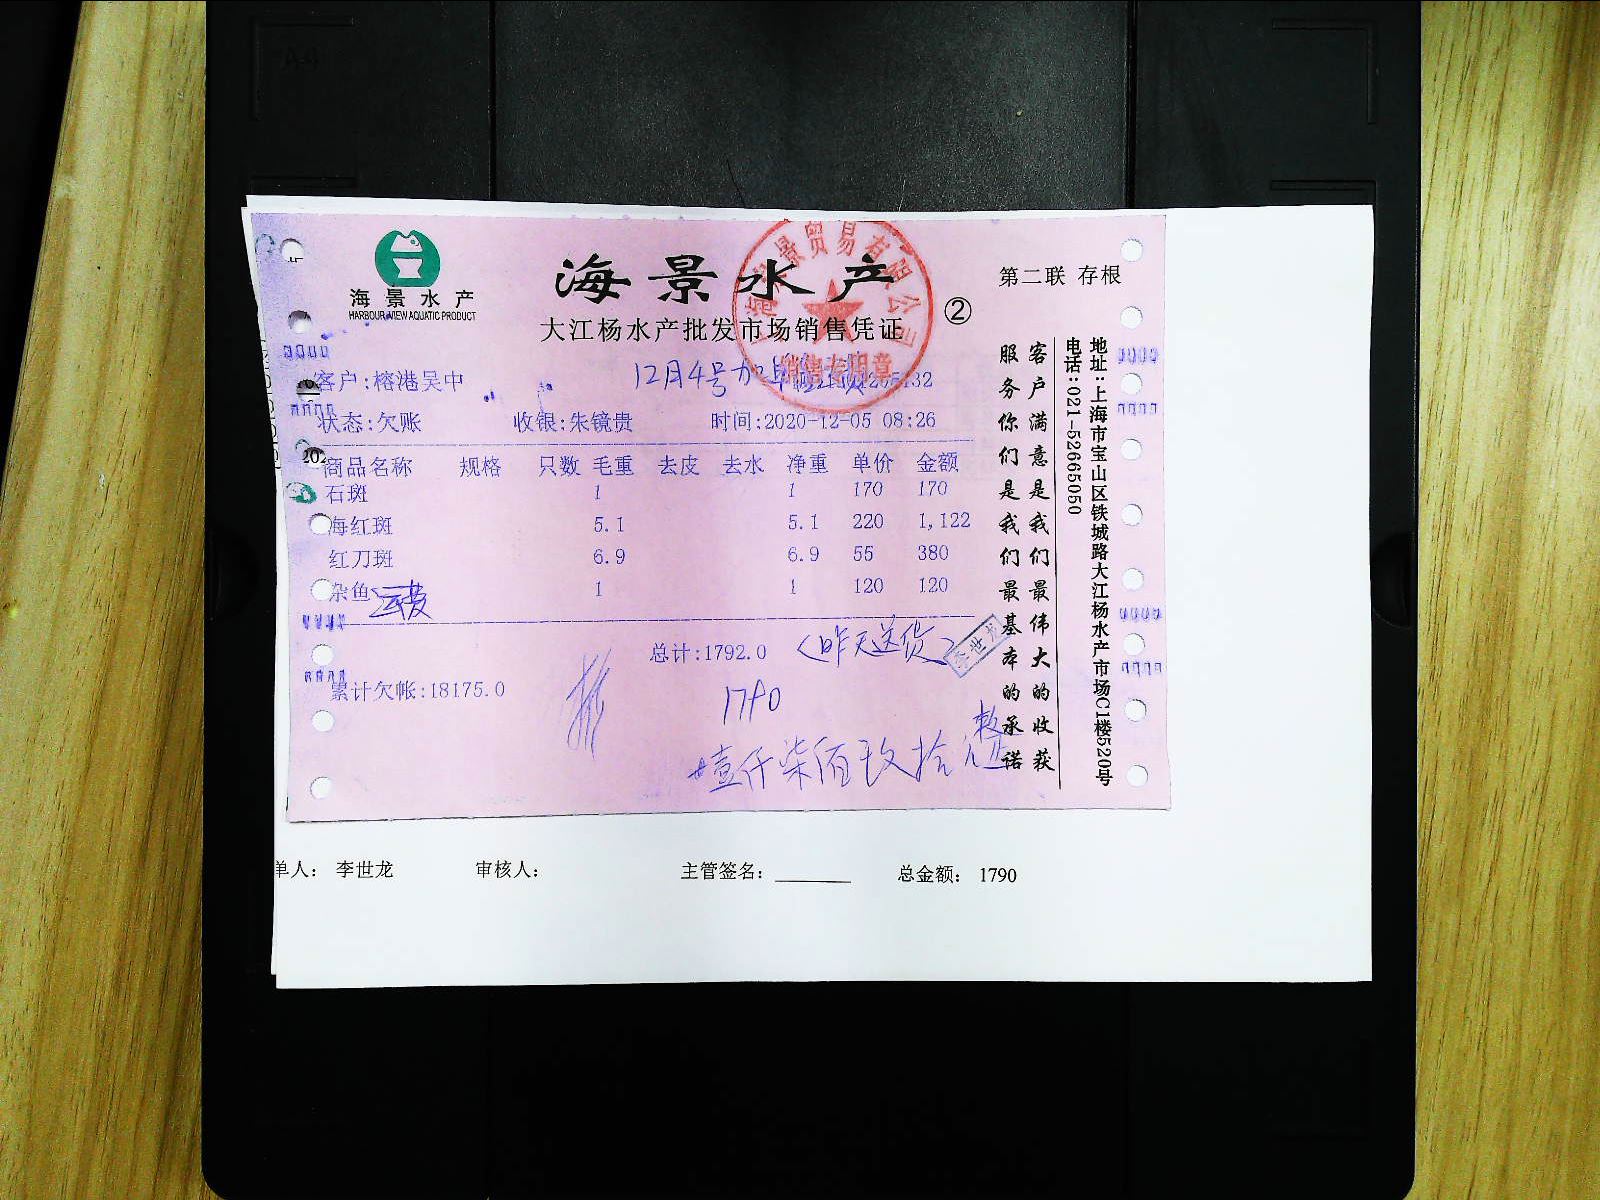 海景水产
HARBOUR VIEW AQUATIC PRODUCT
海景水产
大江杨水产批发市场销售凭证
②
第二联 存根
景贸易有限公司
销售专用章
客户:榕港吴中
12月4号加单
状态:欠账 收银:朱镜贵 时间:2020-12-05 08:26
商品名称 规格 只数 毛重 去皮 去水 净重 单价 金额
石斑 1 1 170 170
海红斑 5.1 5.1 220 1,122
红刀斑 6.9 6.9 55 380
杂鱼 运费 1 1 120 120
总计:1792.0 (昨天送货)
李世龙
累计欠帐:18175.0
1790
壹仟柒佰玖拾元整
客户满意是我们最伟大的收获
服务你们是我们最基本的承诺
地址:上海市宝山区铁城路大江杨水产市场C1楼520号
电话:021-52665050
单人: 李世龙 审核人: 主管签名: 总金额: 1790